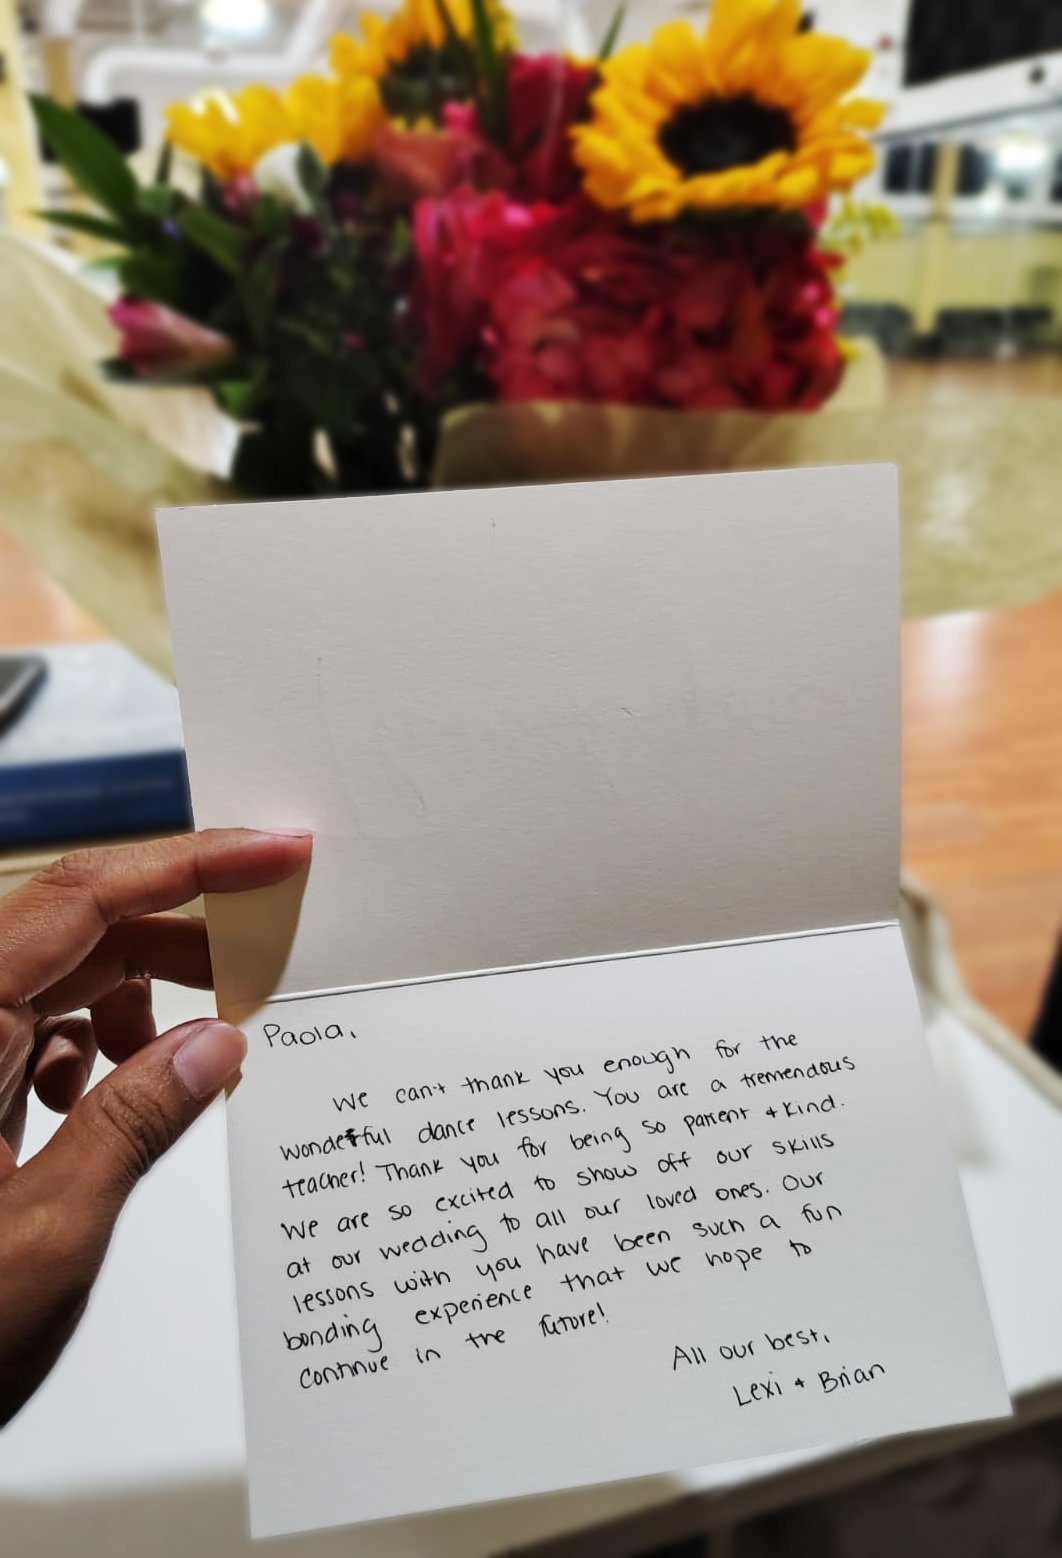 Paola,
We can't thank you enough for the
wonderful dance lessons. You are a tremendous
teacher! Thank you for being so patient + kind.
We are so excited to show off our skills
at our wedding to all our loved ones. Our
lessons with you have been such a fun
bonding experience that we hope to
continue in the future!
All our best,
Lexi + Brian